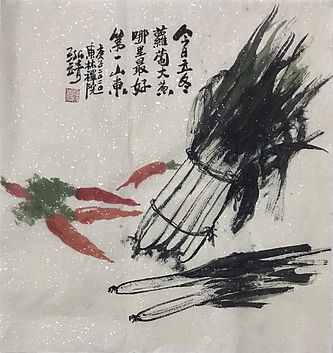 今日立冬
蘿蔔大葱
哪里最好
第一山東
庚子二〇二〇
東林禪院